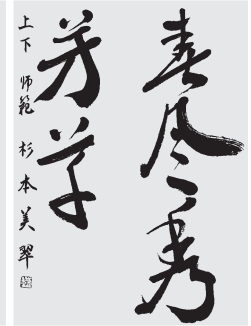 春秀
芳草
上下 师範 杉本美翠